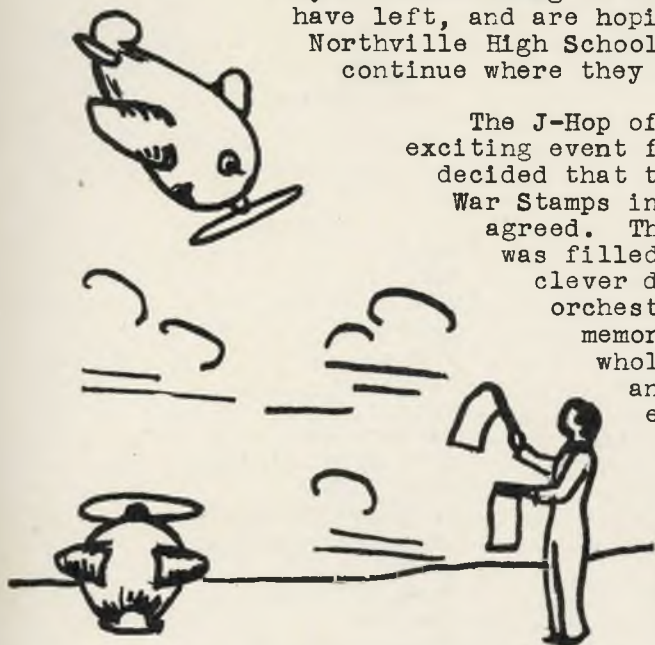 have left, and are hopi
Northville High School
continue where they
The J-Hop of
exciting event f
decided that t
War Stamps in
agreed. Th
was filled
clever d
orchest
memor
whol
an
e